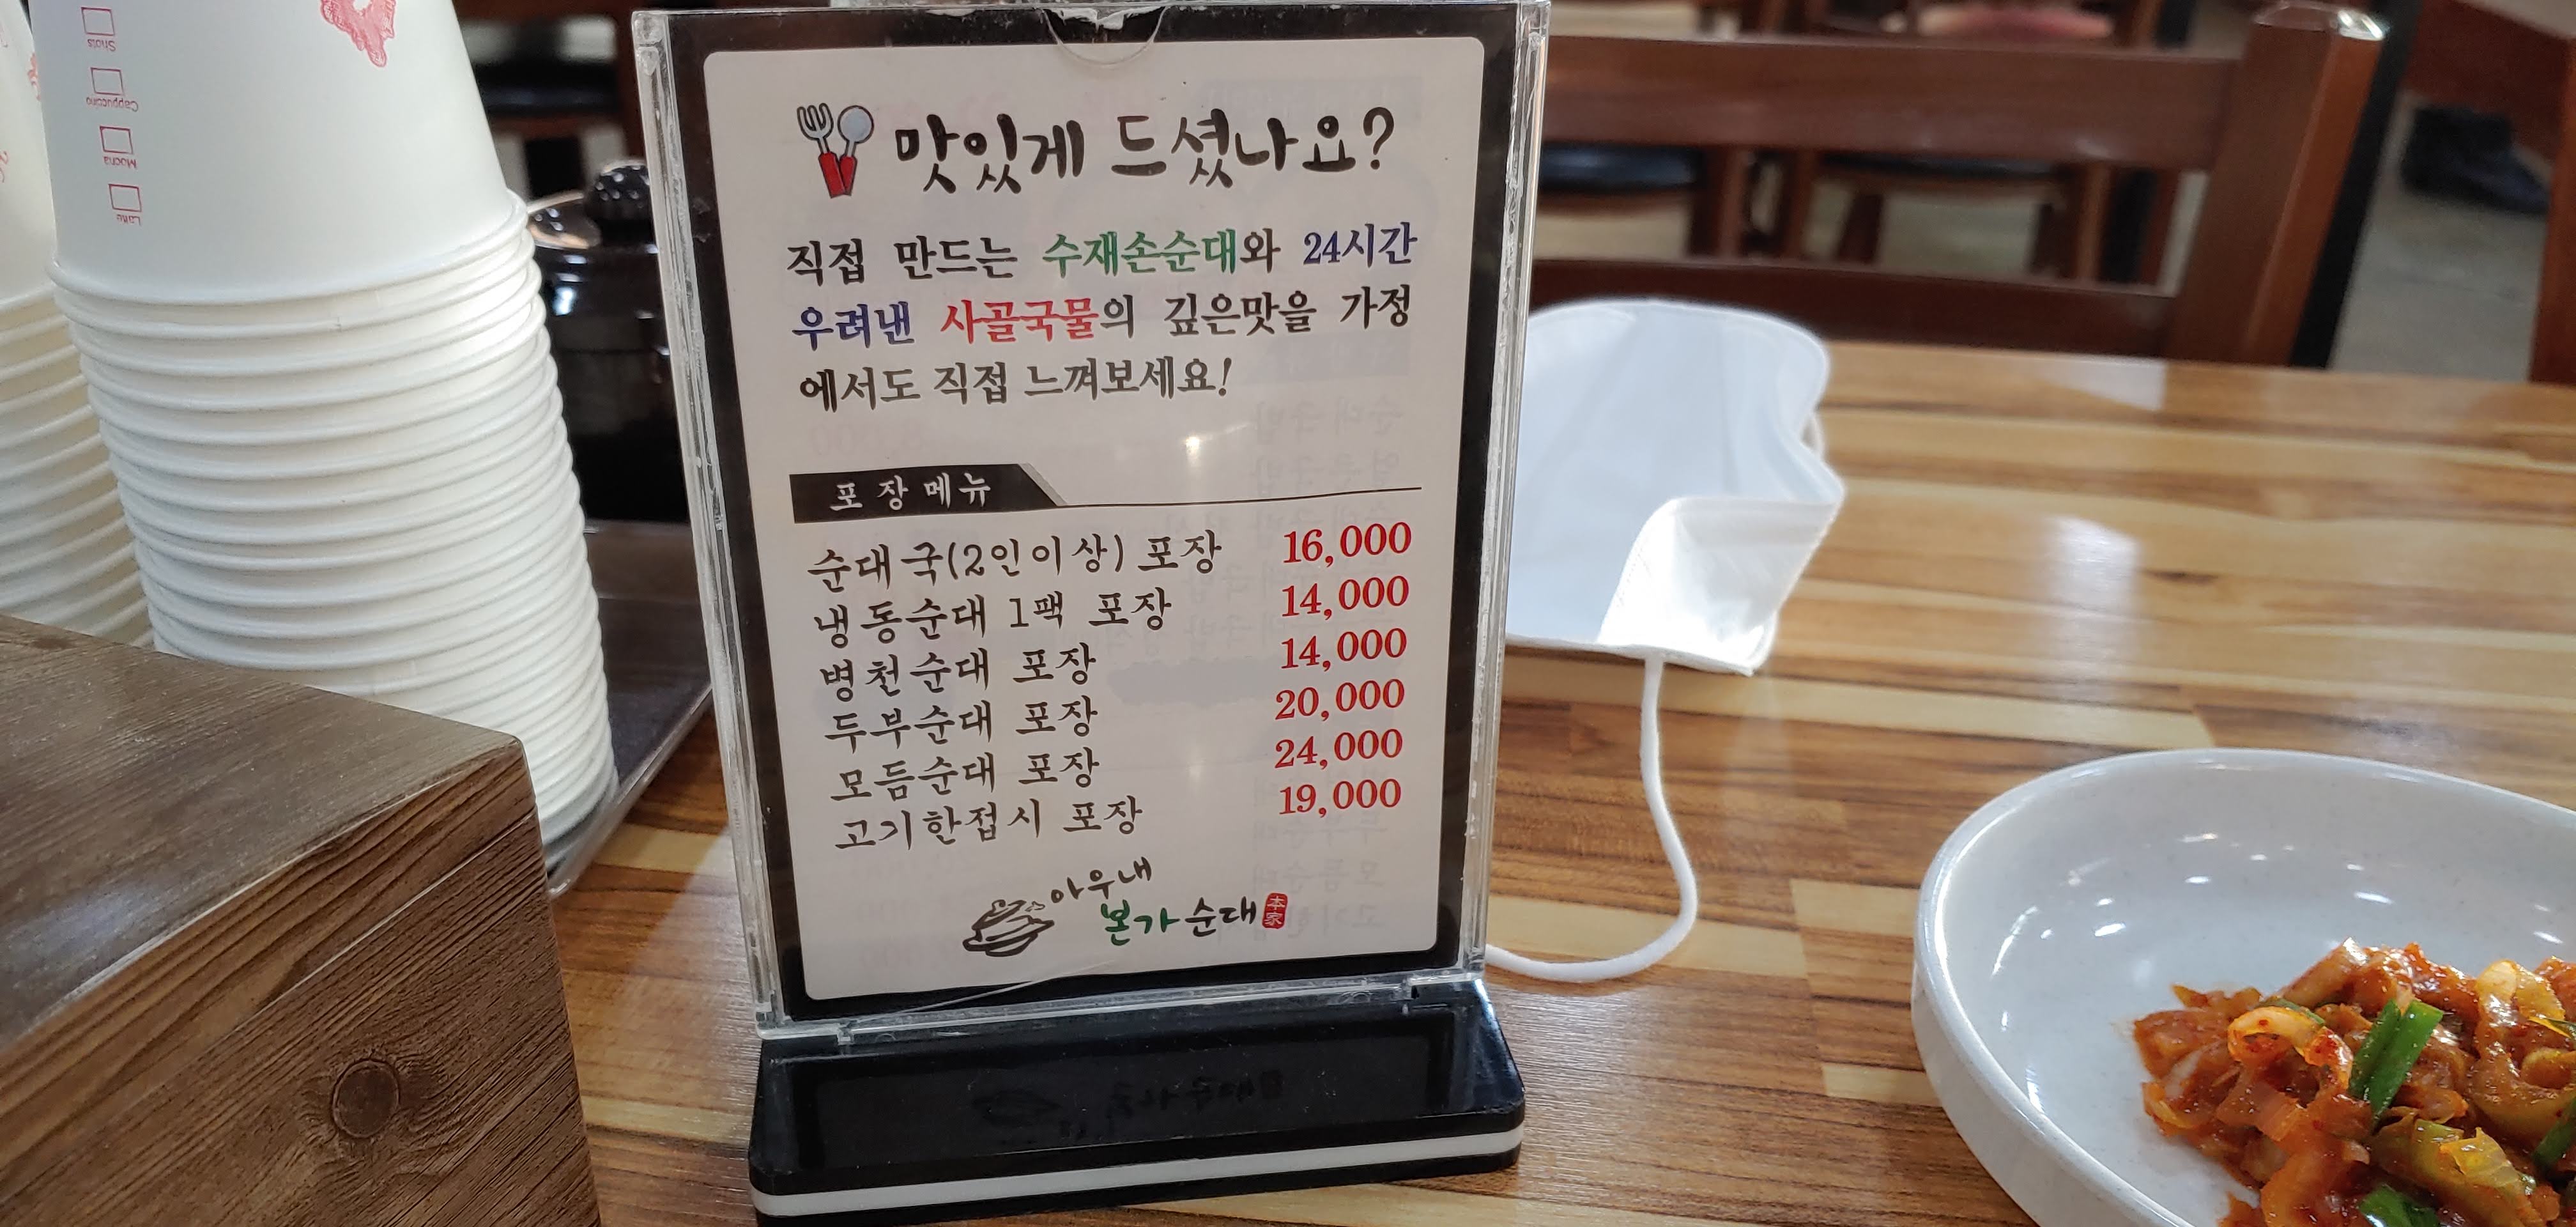 Shots
Cappuccino
Mocha
Latte
맛있게 드셨나요?
직접 만드는 수재손순대와 24시간
우려낸 사골국물의 깊은맛을 가정
에서도 직접 느껴보세요!
포장메뉴
순대국(2인이상) 포장 16,000
냉동순대 1팩 포장 14,000
병천순대 포장 14,000
두부순대 포장 20,000
모듬순대 포장 24,000
고기한접시 포장 19,000
아우내
본가순대 本家